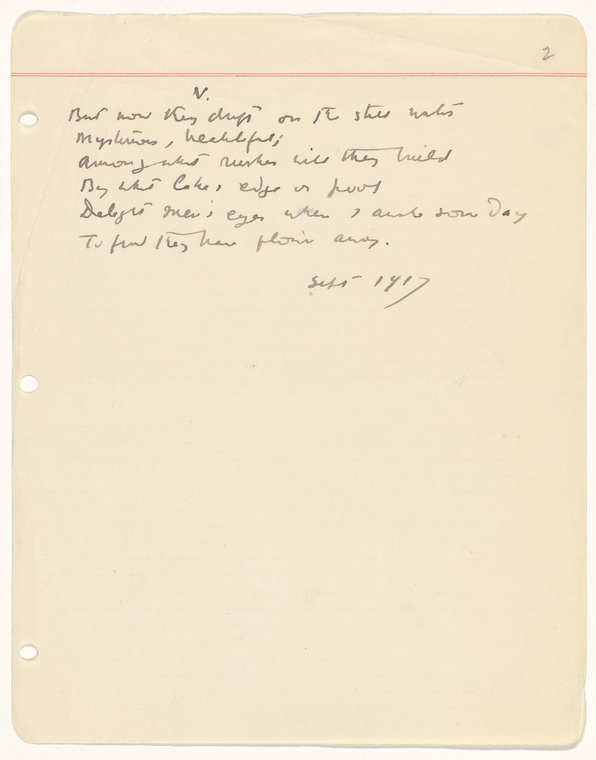 2
V.
But now they drift on the still water
Mysterious, beautiful;
Among what rushes will they build
By what lake's edge or pool
Delight men's eyes when I awake some day
To find they have flown away.
Sept 1917